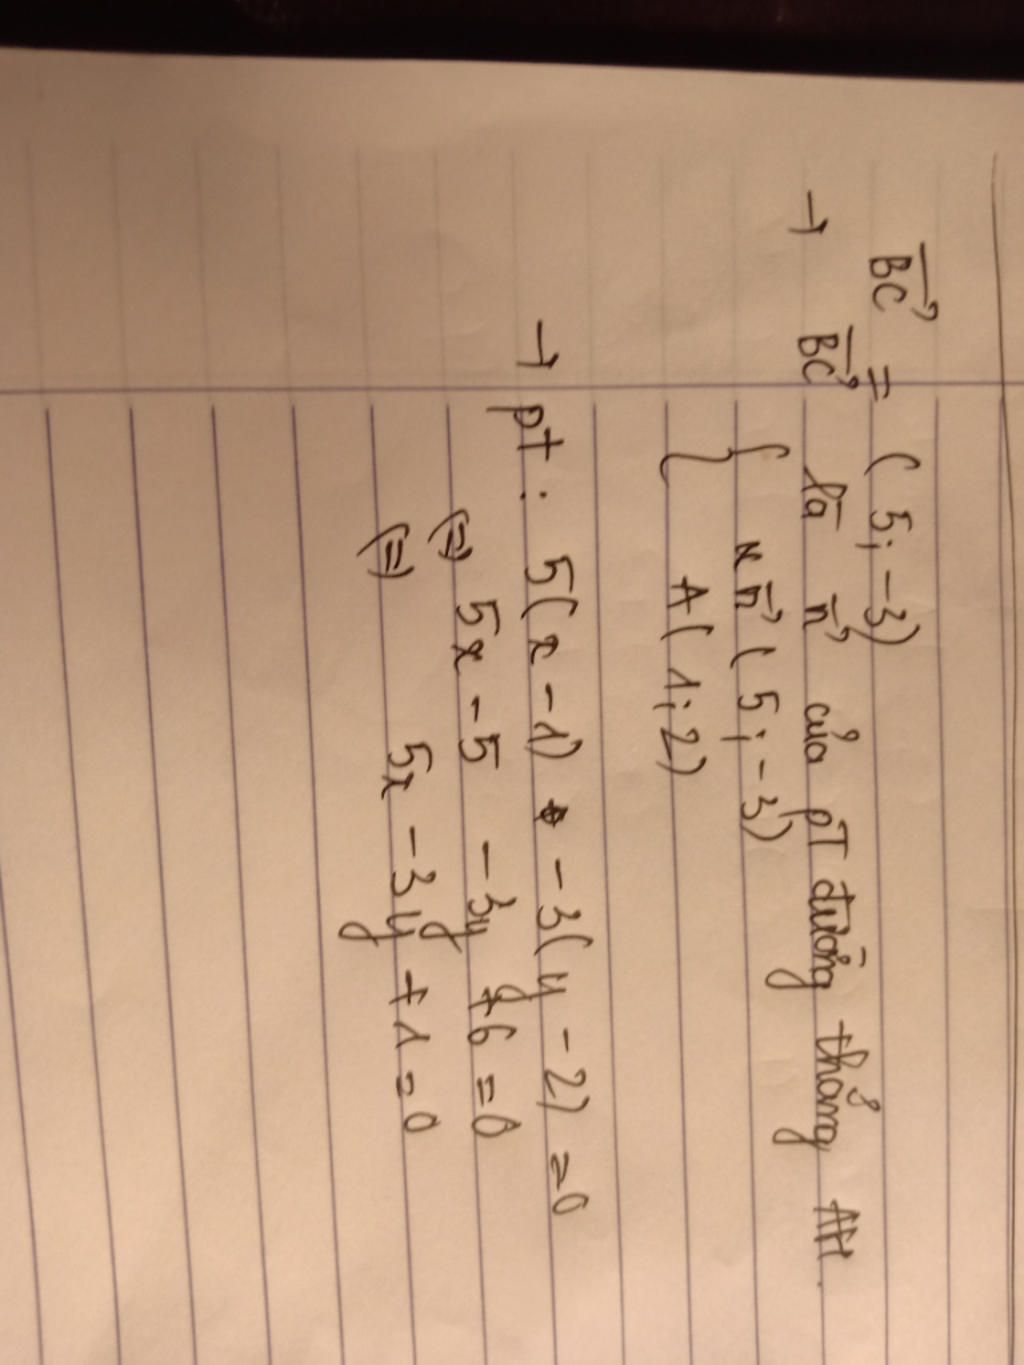 BC = (5; -3)
→ BC là n của pT đường thẳng AH.
{ n (5; -3)
A(1; 2)
→ pt: 5(x - 1) - 3(y - 2) = 0
(=) 5x - 5 - 3y + 6 = 0
(=) 5x - 3y + 1 = 0